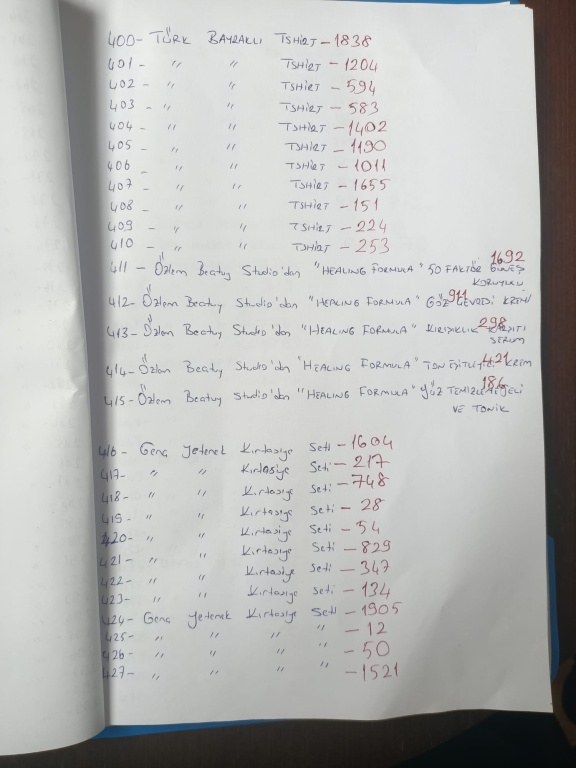 400- TÜRK BAYRAKLI TSHİRT - 1838
401 - " " TSHİRT - 1204
402 - " " TSHİRT - 594
403 - " " TSHİRT - 583
404 - " " TSHİRT - 1402
405 - " " TSHİRT - 1190
406 - " " TSHİRT - 1011
407 - " " TSHİRT - 1655
408 - " " TSHİRT - 151
409 - " " TSHİRT - 224
410 - " " TSHİRT - 253
411 - Özlem Beatuy Studio'dan "HEALING FORMULA" 50 FAKTÖR GÜNEŞ 1692
KORUYUCU
412- Özlem Beatuy Studio'dan "HEALING FORMULA" GÖZ ÇEVRESİ KREMİ 911
413- Özlem Beatuy Studio'dan "HEALING FORMULA" KIRIŞIKLIK KARŞITI 298
SERUM
414- Özlem Beatuy Studio'dan "HEALING FORMULA" TON EŞİTLEYİCİ KREM 421
415- Özlem Beatuy Studio'dan "HEALING FORMULA" YÜZ TEMİZLEME JELİ 186
VE TONİK
416- Genç Yetenek Kırtasiye Seti - 1604
417- " " Kırtasiye Seti - 217
418- " " Kırtasiye Seti - 748
419- " " Kırtasiye Seti - 28
420- " " Kırtasiye Seti - 54
421- " " Kırtasiye Seti - 829
422- " " Kırtasiye Seti - 347
423- " " Kırtasiye Seti - 134
424- Genç Yetenek Kırtasiye Seti - 1905
425- " " " " - 12
426- " " " " - 50
427- " " " " - 1521